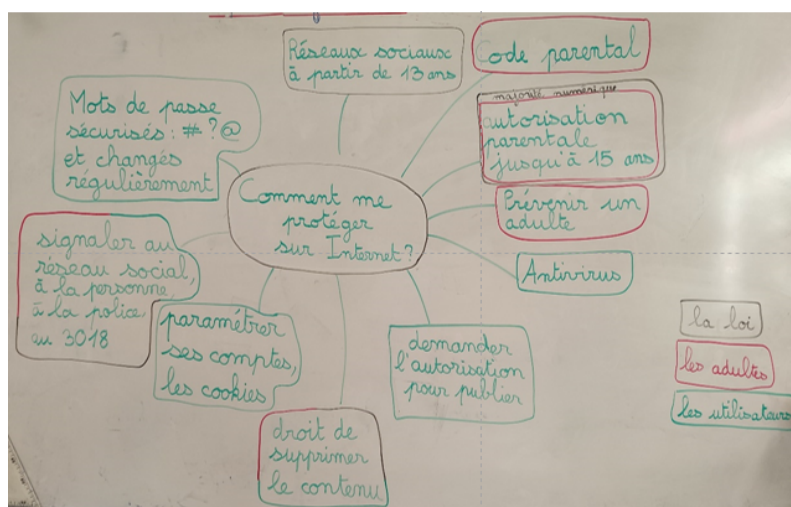 Comment me
protéger
sur Internet ?
Réseaux sociaux
à partir de 13 ans
Code parental
majorité numérique
autorisation
parentale
jusqu'à 15 ans
Prévenir un
adulte
Antivirus
demander
l'autorisation
pour publier
droit de
supprimer
le contenu
paramétrer
ses comptes,
les cookies
signaler au
réseau social,
à la personne,
à la police,
au 3018
Mots de passe
sécurisés : # ? @
et changés
régulièrement
la loi
les adultes
les utilisateurs